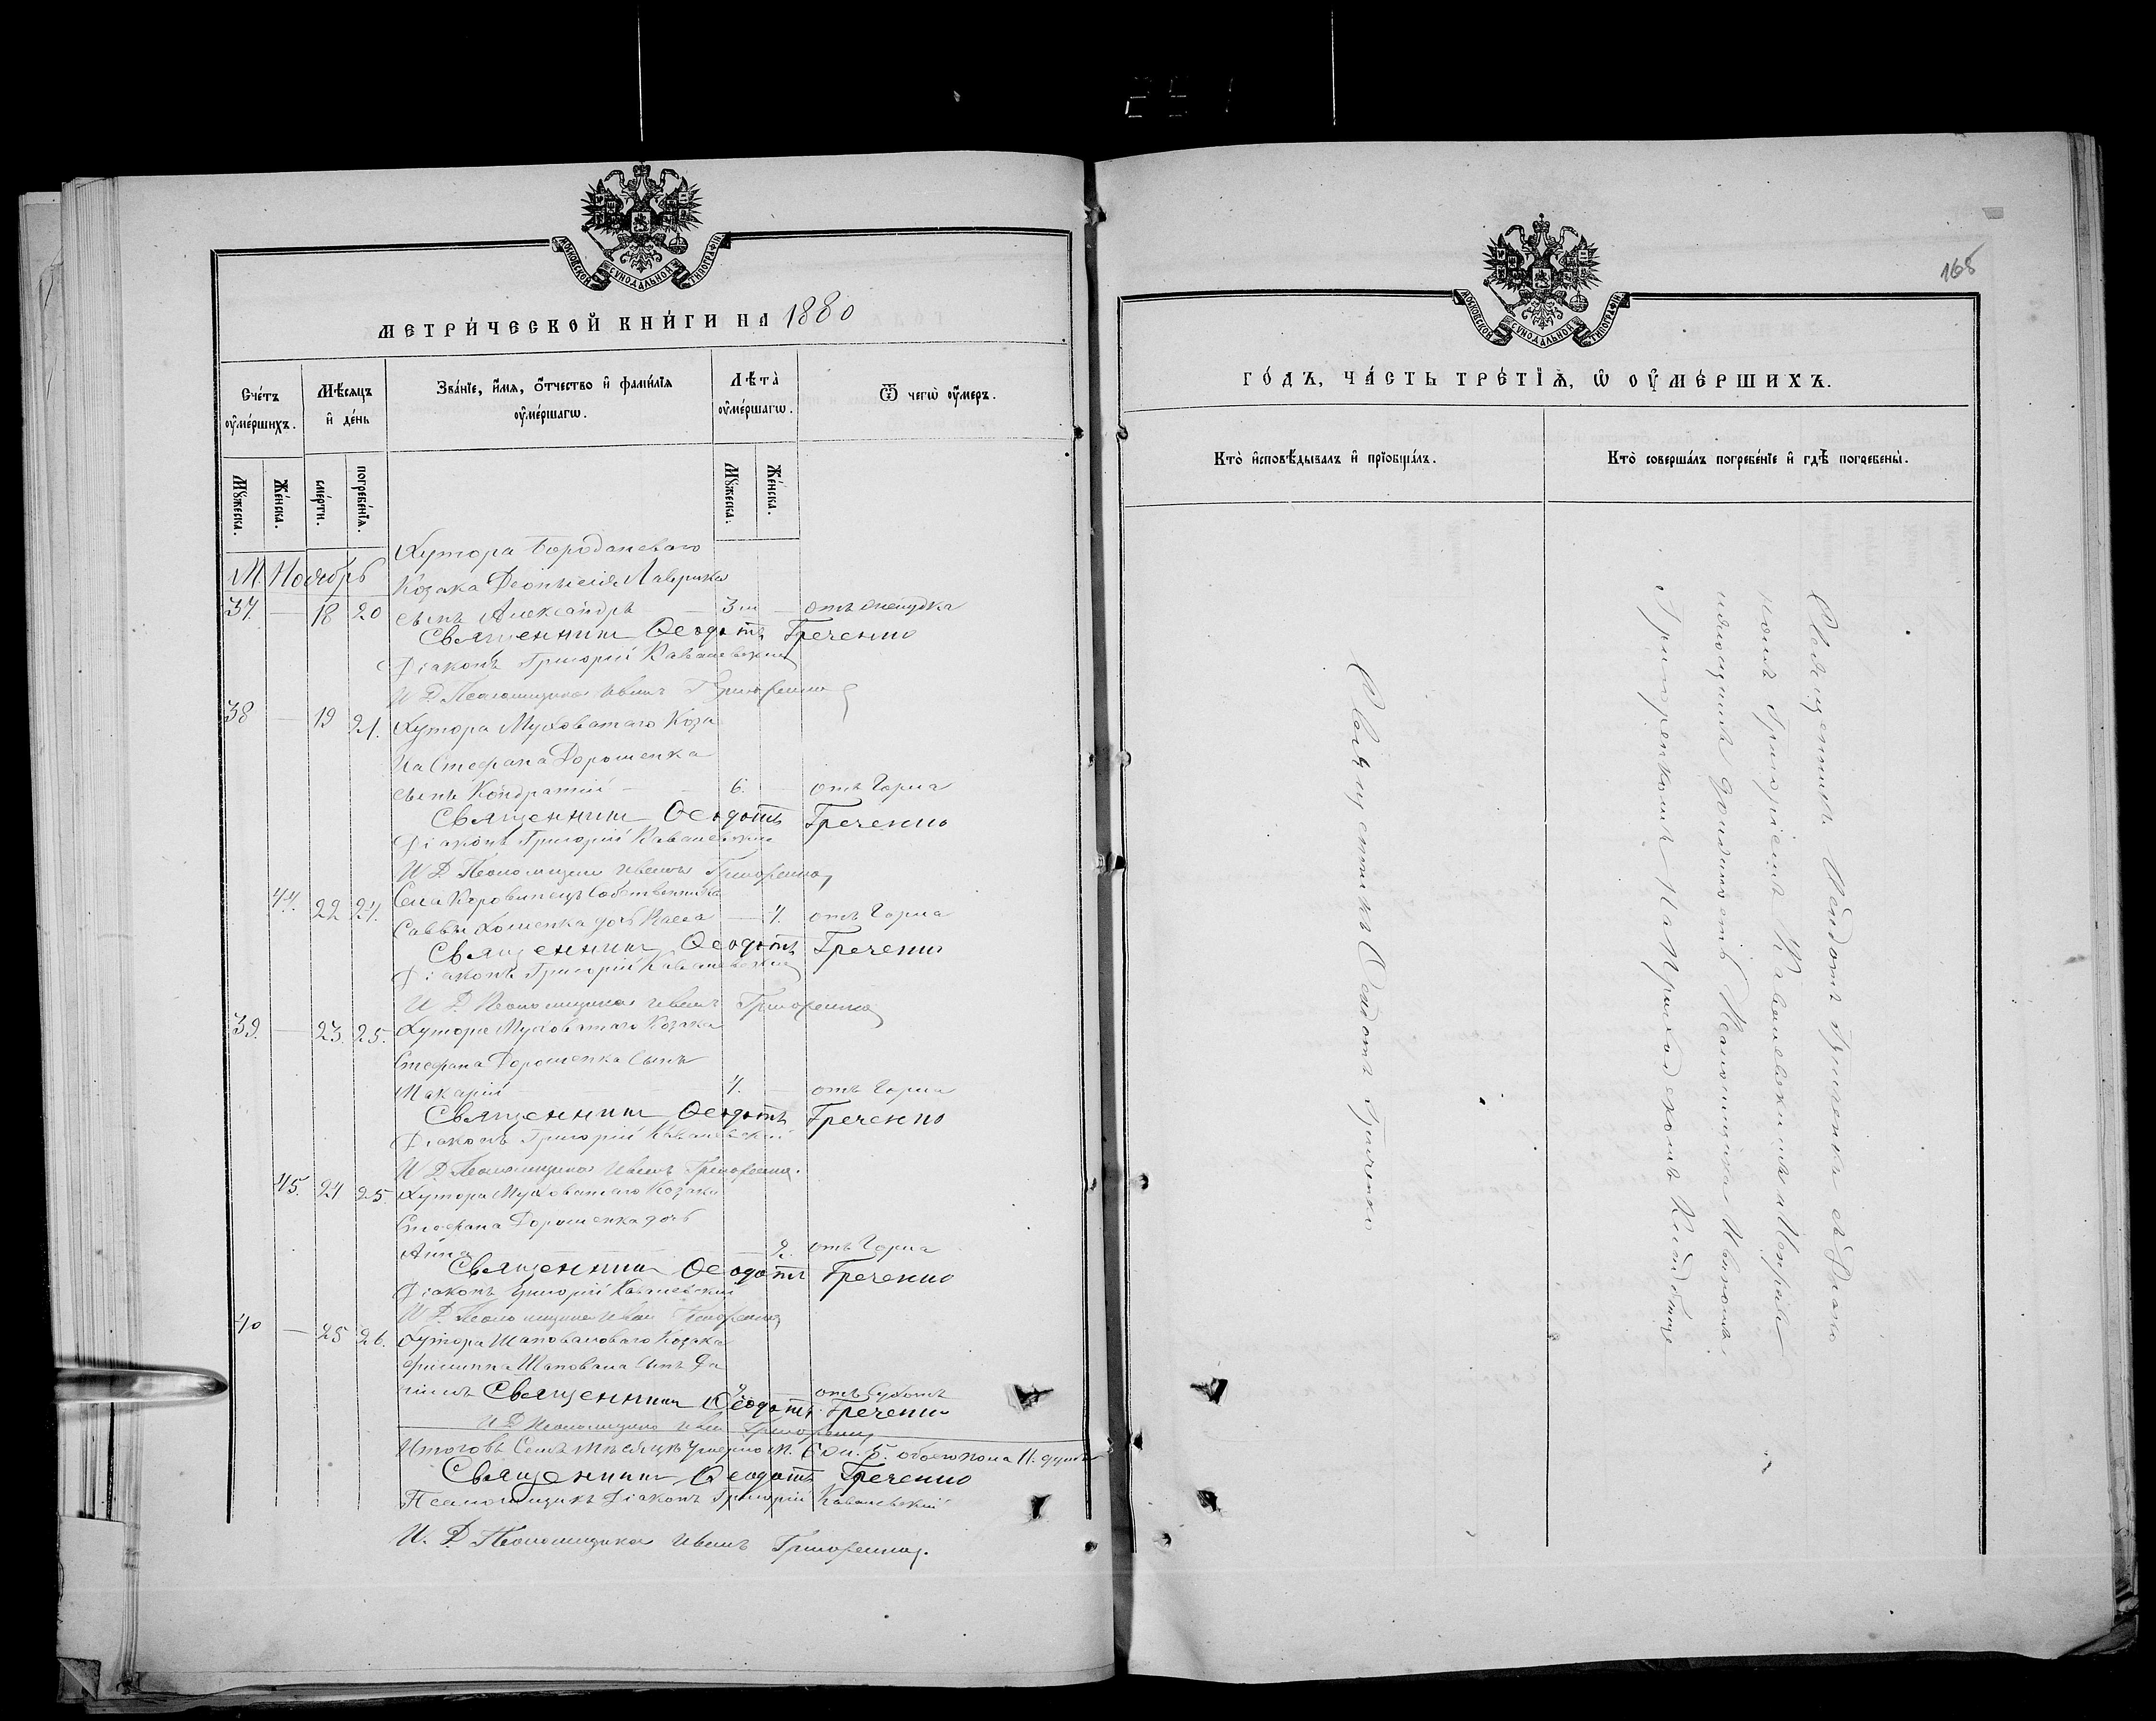 251
МОСКОВСКОЙ СУНОДАЛЬНОЙ ТИПОГРАФІИ
МЕТРИ́ЧЕСКОЙ КНИ́ГИ НА 1880
Сче́тъ ᲂу҆ме́ршихъ.
Мѣ́сяцъ и҆ де́нь
Зва́нїе, и҆́мя, ѻ҆́тчество и҆ фами́лїя ᲂу҆ме́ршагѡ.
Лѣ́та ᲂу҆ме́ршагѡ.
Ѿ чегѡ̀ ᲂу҆́меръ.
Мꙋ́жеска.
Же́нска.
сме́рти.
погребе́нїя.
Мꙋ́жеска.
Же́нска.
Хутора Бороданеваго
М. Ноябрь
Козака Діонисія Лаврика
37. — 18 20 сынъ Александръ — 3 — отъ
Священникъ Ѳеодотъ Греченко
Діаконъ Григорій Кавалевскій
И. Д. Псаломщика Иванъ Григоренко
38 — 19 21. Хутора Муховатаго Коза
ка Стефана Дорошенка
сынъ Кондратій — 6. — отъ Горла
Священникъ Ѳеодотъ Греченко
Діаконъ Григорій Кавалевскій
И. Д. Псаломщика Иванъ Григоренко
44. 22 24. Села Коровинецъ Собственника
Саввы Хоменка дочь — отъ Горла
Священникъ Ѳеодотъ Греченко
Діаконъ Григорій Кавалевскій
И. Д. Псаломщика Иванъ Григоренко
39. — 23. 25. Хутора Муховатаго Козака
Стефана Дорошенка Сынъ
Макарій — отъ Горла
Священникъ Ѳеодотъ Греченко
Діаконъ Григорій Кавалевскій
И. Д. Псаломщика Иванъ Григоренко.
45. 24 25 Хутора Муховатаго Козака
Стефана Дорошенка дочь
Анна — 2. отъ Горла
Священникъ Ѳеодотъ Греченко
Діаконъ Григорій Кавалевскій
И. Д. Псаломщика Иванъ Григоренко
40 — 25 26. Хутора Шаповаловаго Козака
Филиппа Шаповала Сынъ Да
ніилъ отъ
Священникъ Ѳеодотъ Греченко
И. Д. Псаломщика Иванъ Григоренко
Итого въ Семъ Мѣсяцѣ Умерло М. 6 Ж. 5. обоего пола 11. душъ
Священникъ Ѳеодотъ Греченко
Псаломщикъ Діаконъ Григорій Кавалевскій
И. Д. Псаломщика Иванъ Григоренко.
168
МОСКОВСКОЙ СУНОДАЛЬНОЙ ТИПОГРАФІИ
ГО́ДЪ, ЧА́СТЬ ТРЕ́ТЇѦ, Ѡ҆ ОУ҆МЕ́РШИХЪ.
Кто̀ и҆сповѣ́дывалъ и҆ прїобща́лъ.
Кто̀ соверша́лъ погребе́нїе и҆ гдѣ̀ погребены̀.
Священникъ Ѳеодотъ Греченко
Священникъ Ѳеодотъ Греченко съ Діако
номъ Григоріемъ Кавалевскимъ и Исправ
ляющимъ должность Псаломщика Иваномъ
Григоренкомъ на Приходскомъ Кладбищѣ